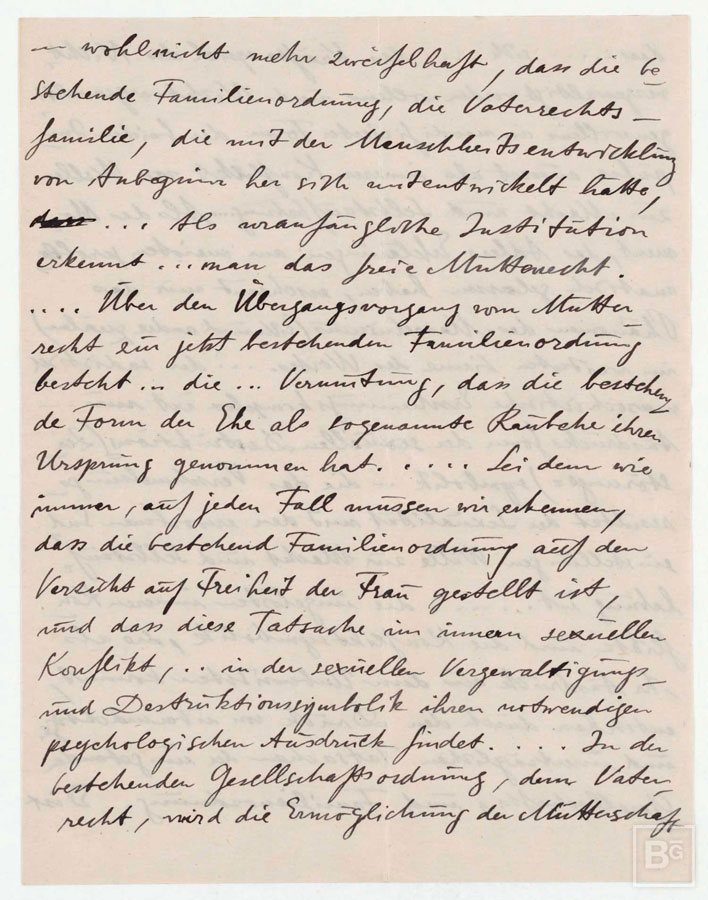 — wohl nicht mehr zweifelhaft, dass die be
stehende Familienordnung, die Vaterrechts-
familie, die mit der Menschheitsentwicklung
von Anbeginn her sich mitentwickelt hätte,
dass ... Als uranfängliche Institution
erkennt ... man das freie Mutterrecht.
.... Über den Übergangsvorgang vom Mutter
recht ein jetzt bestehenden Familienordnung
besteht ... die ... Vermutung, dass die bestehen
de Form der Ehe als sogenannte Raubehe ihren
Ursprung genommen hat. .... Sei dem wie
immer, auf jeden Fall müssen wir erkennen,
dass die bestehend Familienordnung auf den
Verzicht auf Freiheit der Frau gestellt ist,
und dass diese Tatsache im innern sexuellen
Konflikt, .. in der sexuellen Vergewaltigungs-
und Destruktionssymbolik ihren notwendigen
psychologischen Ausdruck findet. .... In der
bestehenden Gesellschaftsordnung, dem Vater-
recht, wird die Ermöglichung der Mutterschaf
BG